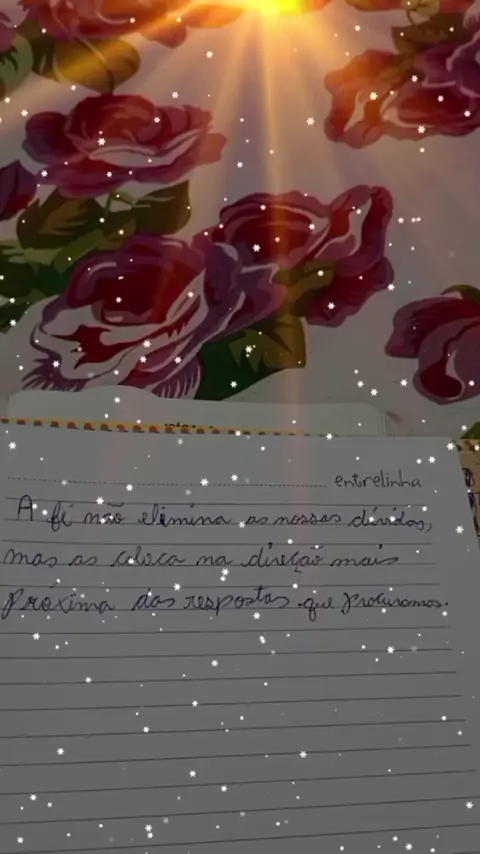 entrelinha
A fé não elimina as nossas dúvidas,
mas as coloca na direção mais
próxima das respostas que procuramos.